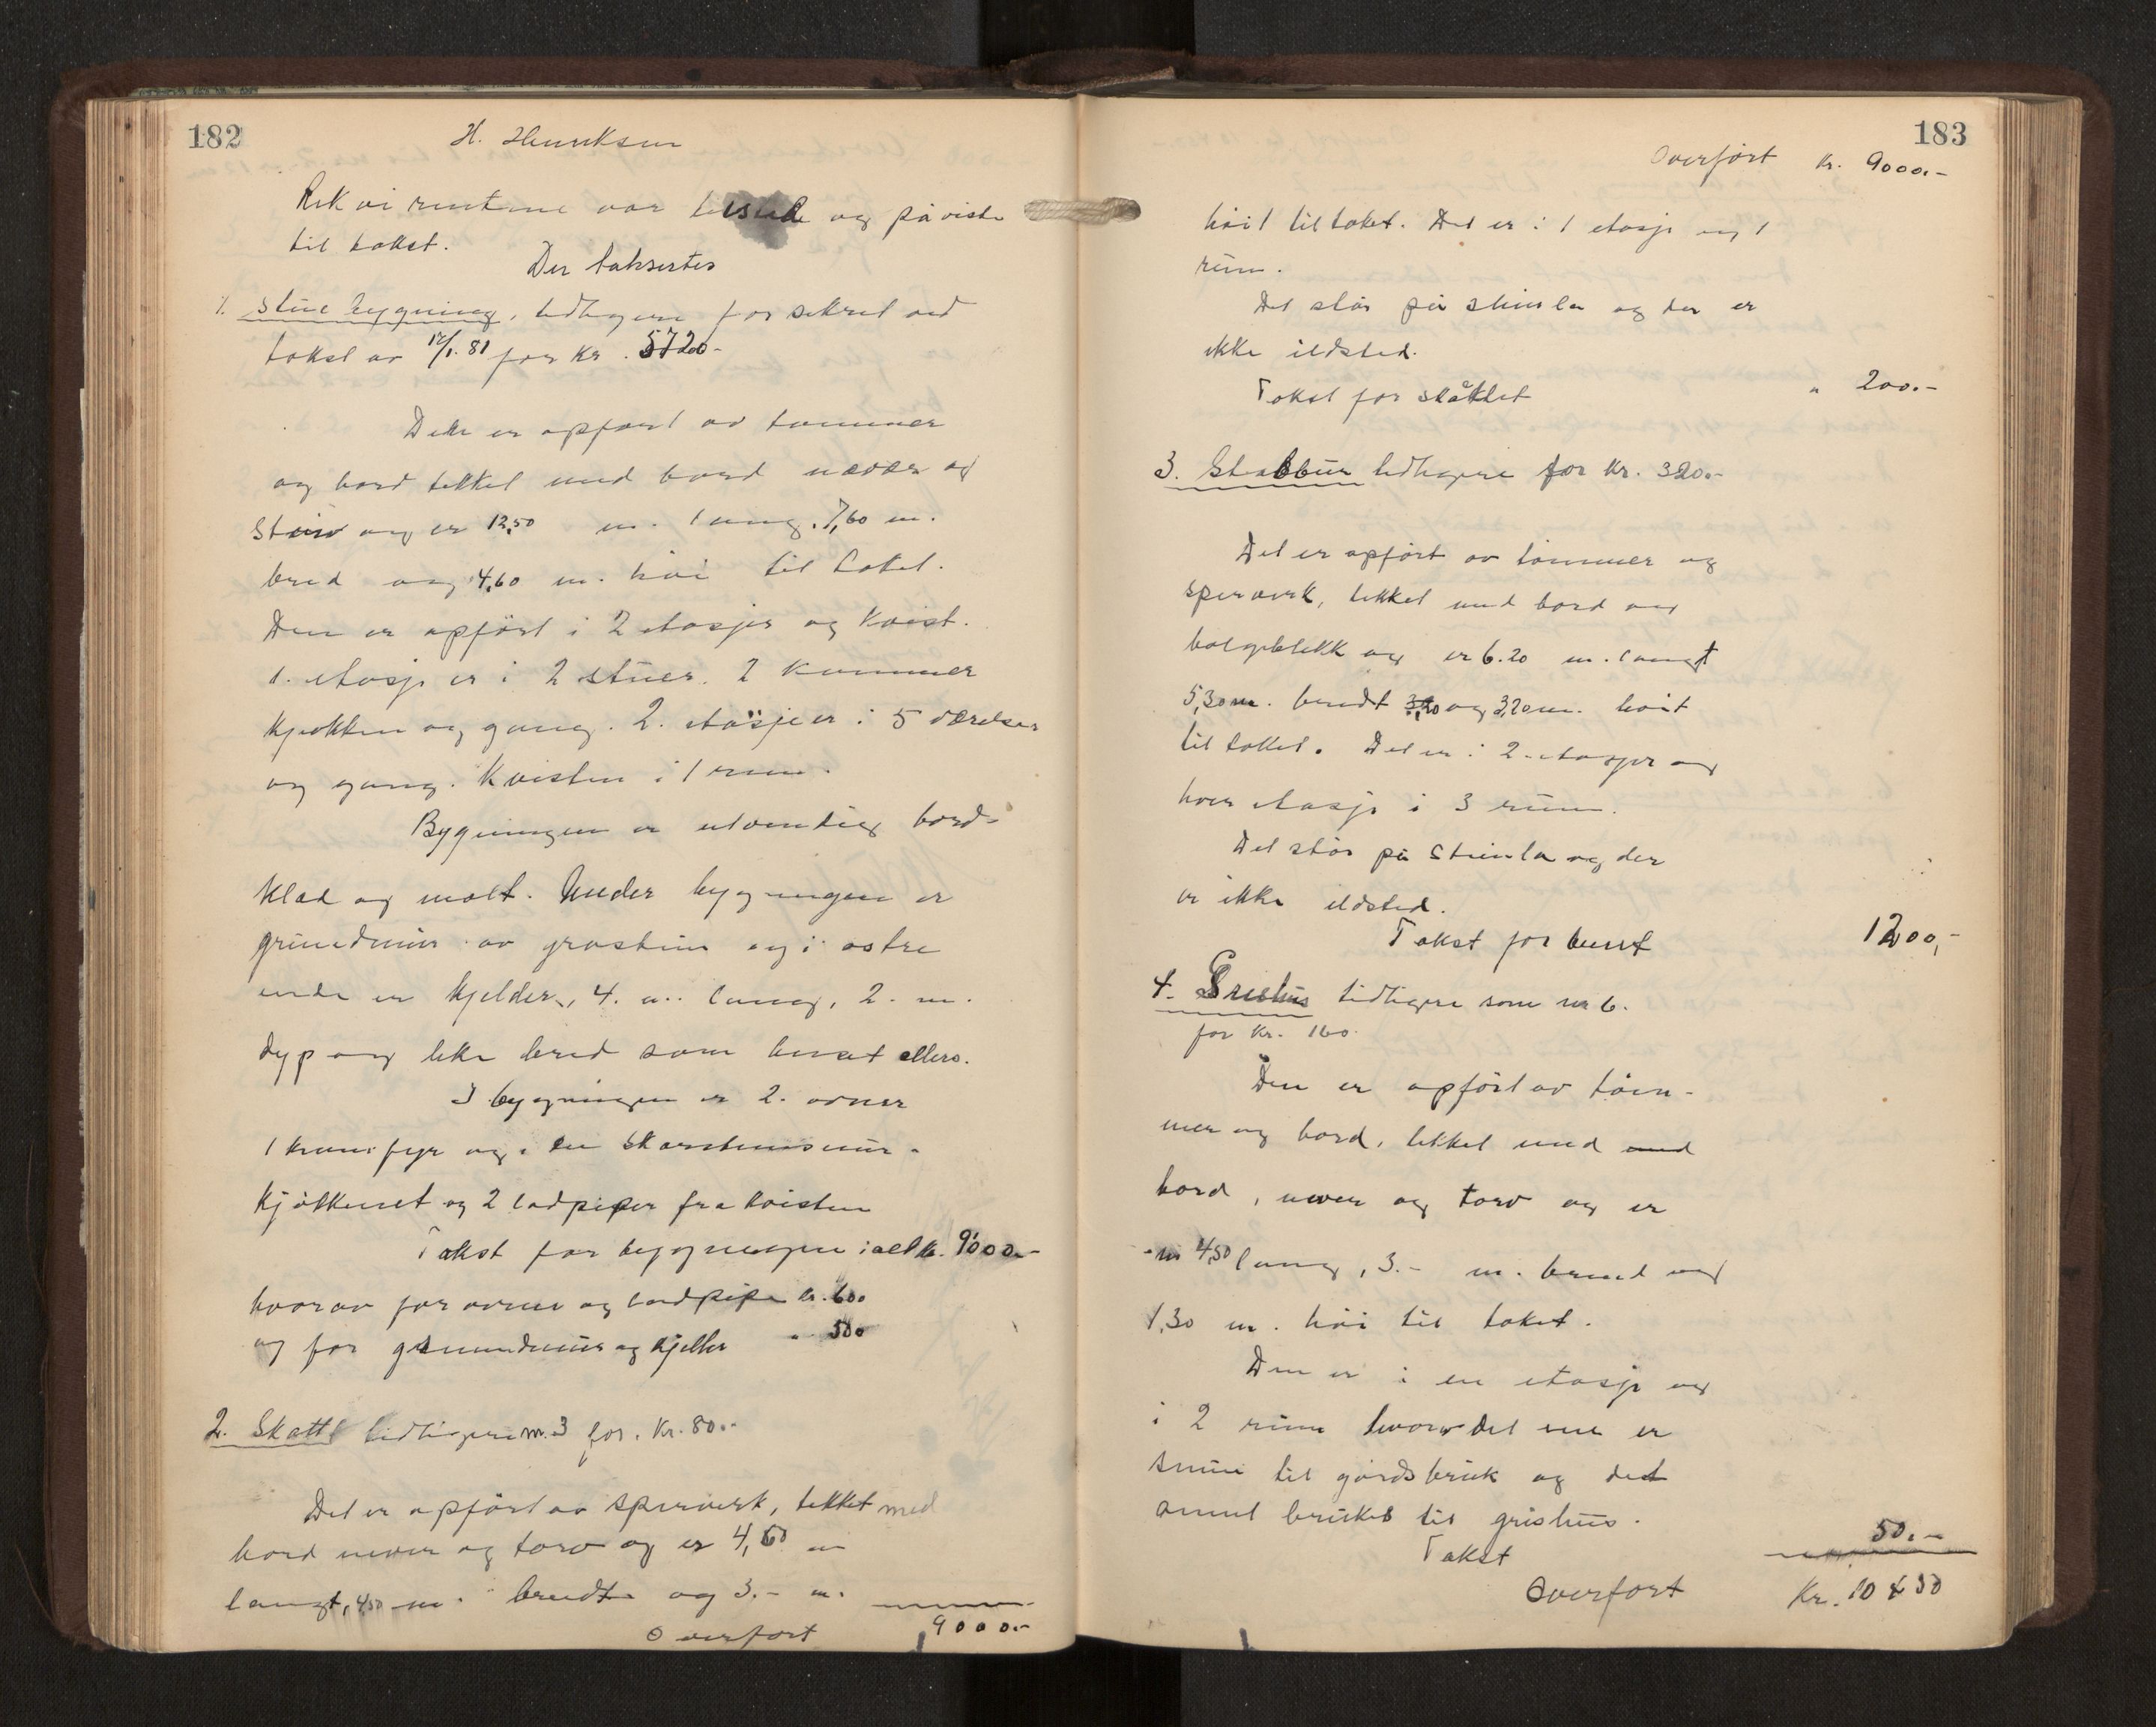 182
H. Henriksen
Rekvirentene var tilstede og påviste
til takst.
Der taksertes
1. Stuebygning, tidligere forsikret ved
takst av 12/1.81 for kr. 5720-
Den er opført av tømmer
og bord tekket med bord næver og
og er 12,50 m. lang. 7,60 m.
bred og 4,60 m. høi til taket.
Den er opført i 2 etasjer og kvist.
1. etasje er i 2 stuer. 2 kammer
kjøkken og gang. 2. etasje er i 5 værelser
og gang. Kvisten i 1 rum.
Bygningen er utvendig bord-
klæd og malt. Under bygningen er
grundmur av gråstein og i østre
ende er kjelder, 4. m. lang, 2. m.
dyp og like bred som huset ellers.
I bygningen er 2. ovner
1 komfyr og i en skorstensmur.
kjøkkenet og 2 lodpiper fra kvisten
Takst for bygningen ialt kr. 9000.-
hvorav for ovner og lodpipe kr. 600
og for grundmur og kjeller " 500
2. Skått tidligere nr. 3 for. Kr. 80.-
Det er opført av sperverk, tekket med
bord never og torv og er 4,60 m
langt, 4,50 m. bredt og 3.- m.
Overført 9000.-
183
Overført kr. 9000.-
høit til taket. Det er i 1 etasje og 1
rum.
Det står på steinla og der er
ikke ildsted.
Takst for skåttet " 200.-
3. Stabbur tidligere for kr. 320.-
Det er opført av tømmer og
sperverk, tekket med bord og
bølgeblekk og er 6.20 m. langt
5,30 m. bredt 3,20 og 3,20 m. høit
til taket. Det er i 2. etasjer og
hver etasje i 3 rum.
Det står på steinla og der
er ikke ildsted.
Takst for buret 1200,-
4. Grishus tidligere som nr 6.
for kr. 160.
Den er opført av tøm-
mer og bord, tekket med med
bord, never og torv og er
m 4,50 lang, 3.- m. bred og
1,30 m. høi til taket.
Den er i en etasje og
i 2 rum hvorav det ene er
smie til gårdsbruk og det
annet brukes til grishus.
Takst 50.-
Overført Kr. 10450